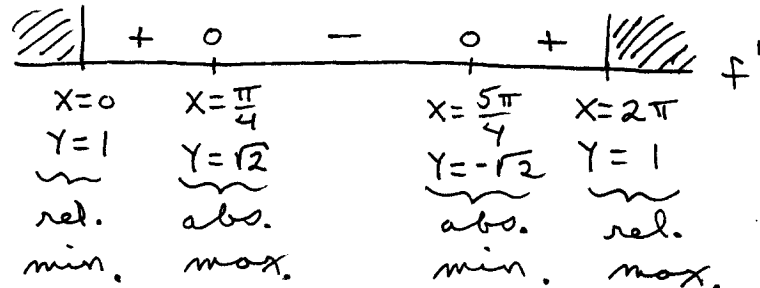 + 0 − 0 + f'
X=0 X=π/4 X=5π/4 X=2π
Y=1 Y=√2 Y=-√2 Y=1
rel. abs. abs. rel.
min. max. min. max.